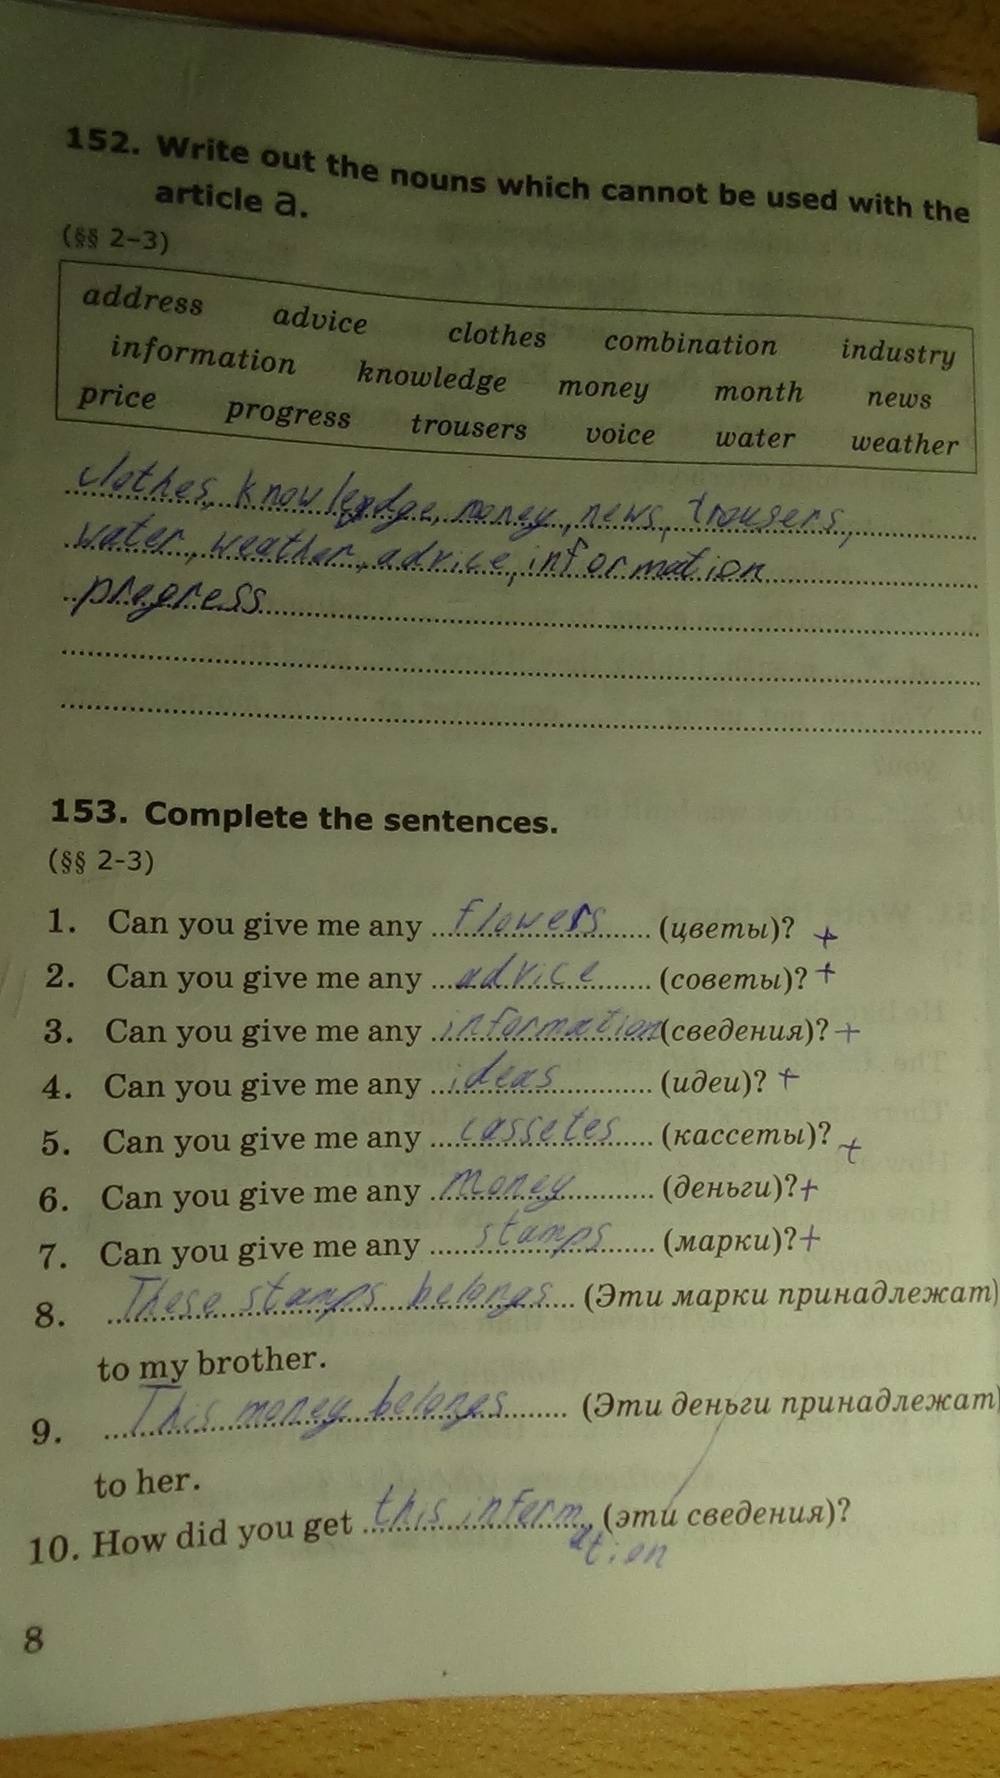 152. Write out the nouns which cannot be used with the
article a.
(§§ 2–3)
address advice clothes combination industry
information knowledge money month news
price progress trousers voice water weather
clothes, knowledge, money, news, trousers,
water, weather, advice, information
progress
153. Complete the sentences.
(§§ 2-3)
1. Can you give me any flowers (цветы)? +
2. Can you give me any advice (советы)? +
3. Can you give me any information (сведения)? +
4. Can you give me any ideas (идеи)? +
5. Can you give me any cassetes (кассеты)? +
6. Can you give me any money (деньги)? +
7. Can you give me any stamps (марки)? +
8. These stamps belongs (Эти марки принадлежат)
to my brother.
9. This money belongs (Эти деньги принадлежат)
to her.
10. How did you get this inform (эти сведения)?
ation
8